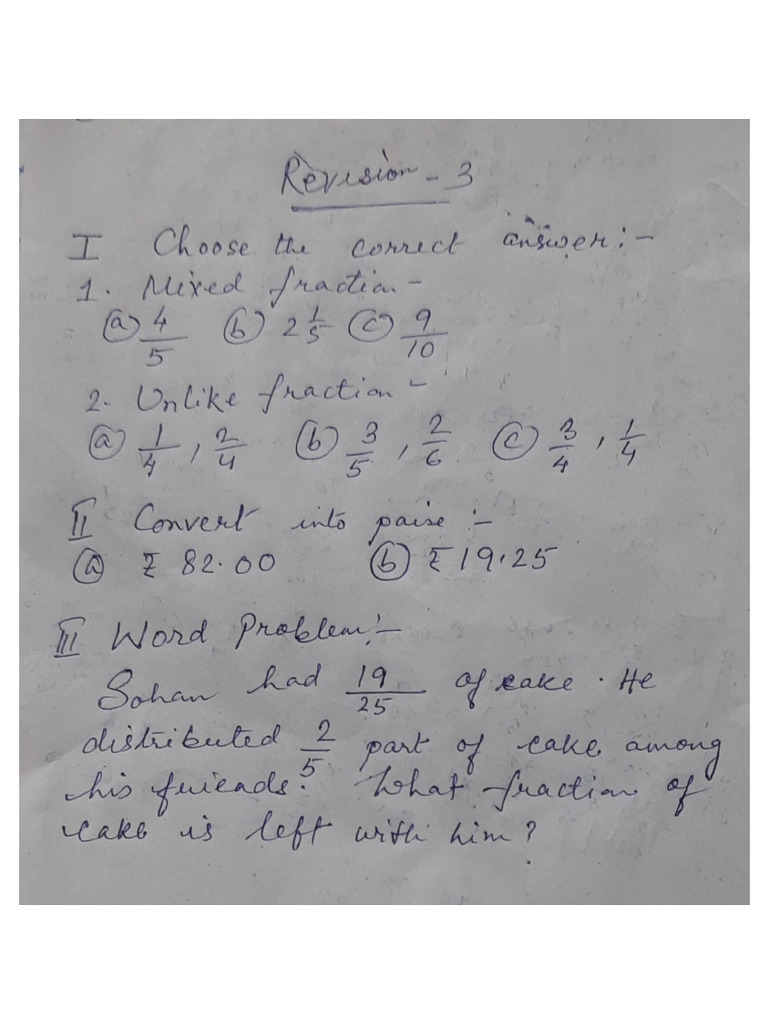 Revision - 3
I Choose the correct answer:-
1. Mixed fraction -
(a) 4/5 (b) 2 1/5 (c) 9/10
2. Unlike fraction -
(a) 1/4, 2/4 (b) 3/5, 2/6 (c) 3/4, 1/4
II Convert into paise :-
(a) ₹ 82.00 (b) ₹ 19.25
III Word Problem:-
Sohan had 19/25 of cake. He
distributed 2/5 part of cake among
his friends. What fraction of
cake is left with him?